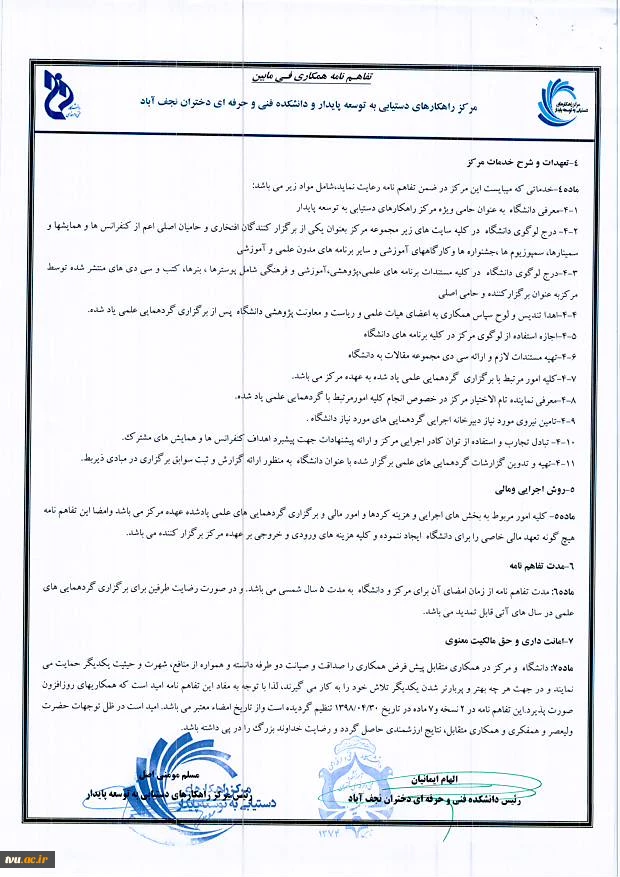 تفاهم نامه همکاری فی مابین
مرکز راهکارهای دستیابی به توسعه پایدار و دانشکده فنی و حرفه ای دختران نجف آباد
مرکز راهکارهای
دستیابی به توسعه پایدار
۴-تعهدات و شرح خدمات مرکز
ماده۴-خدماتی که میبایست این مرکز در ضمن تفاهم نامه رعایت نماید،شامل مواد زیر می باشد:
۴-۱-معرفی دانشگاه به عنوان حامی ویژه مرکز راهکارهای دستیابی به توسعه پایدار
۴-۲- درج لوگوی دانشگاه در کلیه سایت های زیر مجموعه مرکز بعنوان یکی از برگزار کنندگان افتخاری و حامیان اصلی اعم از کنفرانس ها و همایشها و
سمینارها، سمپوزیوم ها ،جشنواره ها وکارگاههای آموزشی و سایر برنامه های مدون علمی و آموزشی
۴-۳-درج لوگوی دانشگاه در کلیه مستندات برنامه های علمی،پژوهشی،آموزشی و فرهنگی شامل پوسترها ، بنرها، کتب و سی دی های منتشر شده توسط
مرکزبه عنوان برگزارکننده و حامی اصلی
۴-۴-اهدا تندیس و لوح سپاس همکاری به اعضای هیات علمی و ریاست و معاونت پژوهشی دانشگاه پس از برگزاری گردهمایی علمی یاد شده.
۴-۵-اجازه استفاده از لوگوی مرکز در کلیه برنامه های دانشگاه
۴-۶-تهیه مستندات لازم و ارائه سی دی مجموعه مقالات به دانشگاه
۴-۷-کلیه امور مرتبط با برگزاری گردهمایی علمی یاد شده به عهده مرکز می باشد.
۴-۸-معرفی نماینده تام الاختیار مرکز در خصوص انجام کلیه امورمرتبط با گردهمایی علمی یاد شده.
۴-۹-تامین نیروی مورد نیاز دبیرخانه اجرایی گردهمایی های مورد نیاز دانشگاه .
۴-۱۰- تبادل تجارب و استفاده از توان کادر اجرایی مرکز و ارائه پیشنهادات جهت پیشبرد اهداف کنفرانس ها و همایش های مشترک.
۴-۱۱-تهیه و تدوین گزارشات گردهمایی های علمی برگزار شده با عنوان دانشگاه به منظور ارائه گزارش و ثبت سوابق برگزاری در مبادی ذیربط.
۵-روش اجرایی ومالی
ماده۵- کلیه امور مربوط به بخش های اجرایی و هزینه کردها و امور مالی و برگزاری گردهمایی های علمی یادشده عهده مرکز می باشد وامضا این تفاهم نامه
هیچ گونه تعهد مالی خاصی را برای دانشگاه ایجاد ننموده و کلیه هزینه های ورودی و خروجی بر عهده مرکز برگزار کننده می باشد.
۶-مدت تفاهم نامه
ماده۶: مدت تفاهم نامه از زمان امضای آن برای مرکز و دانشگاه به مدت ۵ سال شمسی می باشد. و در صورت رضایت طرفین برای برگزاری گردهمایی های
علمی در سال های آتی قابل تمدید می باشد.
۷-امانت داری و حق مالکیت معنوی
ماده۷: دانشگاه و مرکز در همکاری متقابل پیش فرض همکاری را صداقت و صیانت دو طرفه دانسته و همواره از منافع، شهرت و حیثیت یکدیگر حمایت می
نمایند و در جهت هر چه بهتر و پربارتر شدن یکدیگر تلاش خود را به کار می گیرند، لذا با توجه به مفاد این تفاهم نامه امید است که همکاریهای روزافزون
صورت پذیرد.این تفاهم نامه در ۲ نسخه و۷ ماده در تاریخ ۱۳۹۸/۰۴/۳۰ تنظیم گردیده است واز تاریخ امضاء معتبر می باشد. امید است در ظل توجهات حضرت
ولیعصر و همفکری و همکاری متقابل، نتایج ارزشمندی حاصل گردد و رضایت خداوند بزرگ را در پی داشته باشد.
الهام ایمانیان
رئیس دانشکده فنی و حرفه ای دختران نجف آباد
۱۳۷۴
مسلم مومنی اصل
رئیس مرکز راهکارهای دستیابی به توسعه پایدار
مرکز راهکارهای
دستیابی به توسعه پایدار
tvu.ac.ir